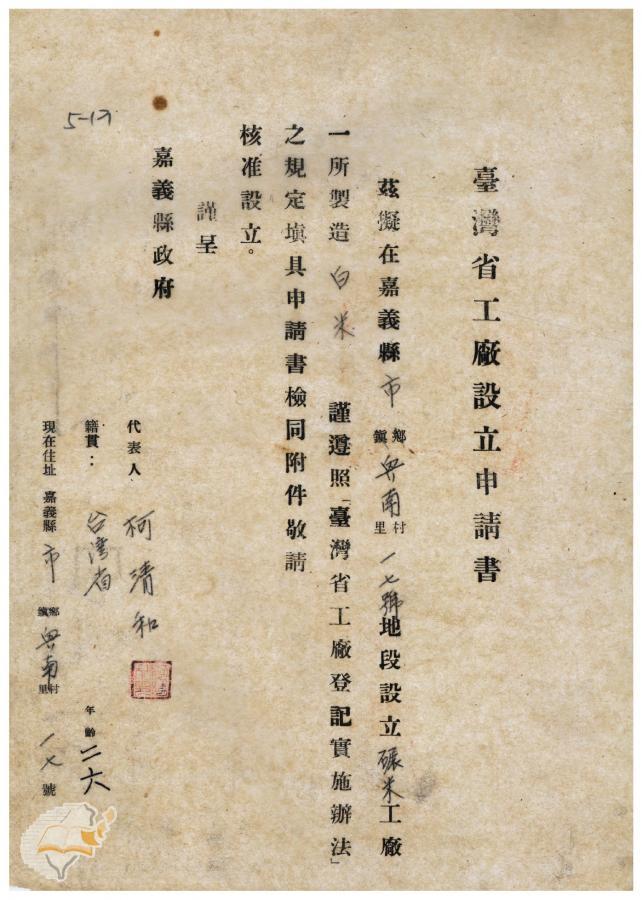 臺灣省工廠設立申請書
茲擬在嘉義縣市鄉鎮興南村里一七號地段設立碾米工廠
一所製造白米 謹遵照「臺灣省工廠登記實施辦法」
之規定填具申請書檢同附件敬請
核准設立。
謹呈
嘉義縣政府
代表人 柯清和
籍貫：台灣省 年齡 二六
現在住址 嘉義縣市鄉鎮興南村里一七號
5-17